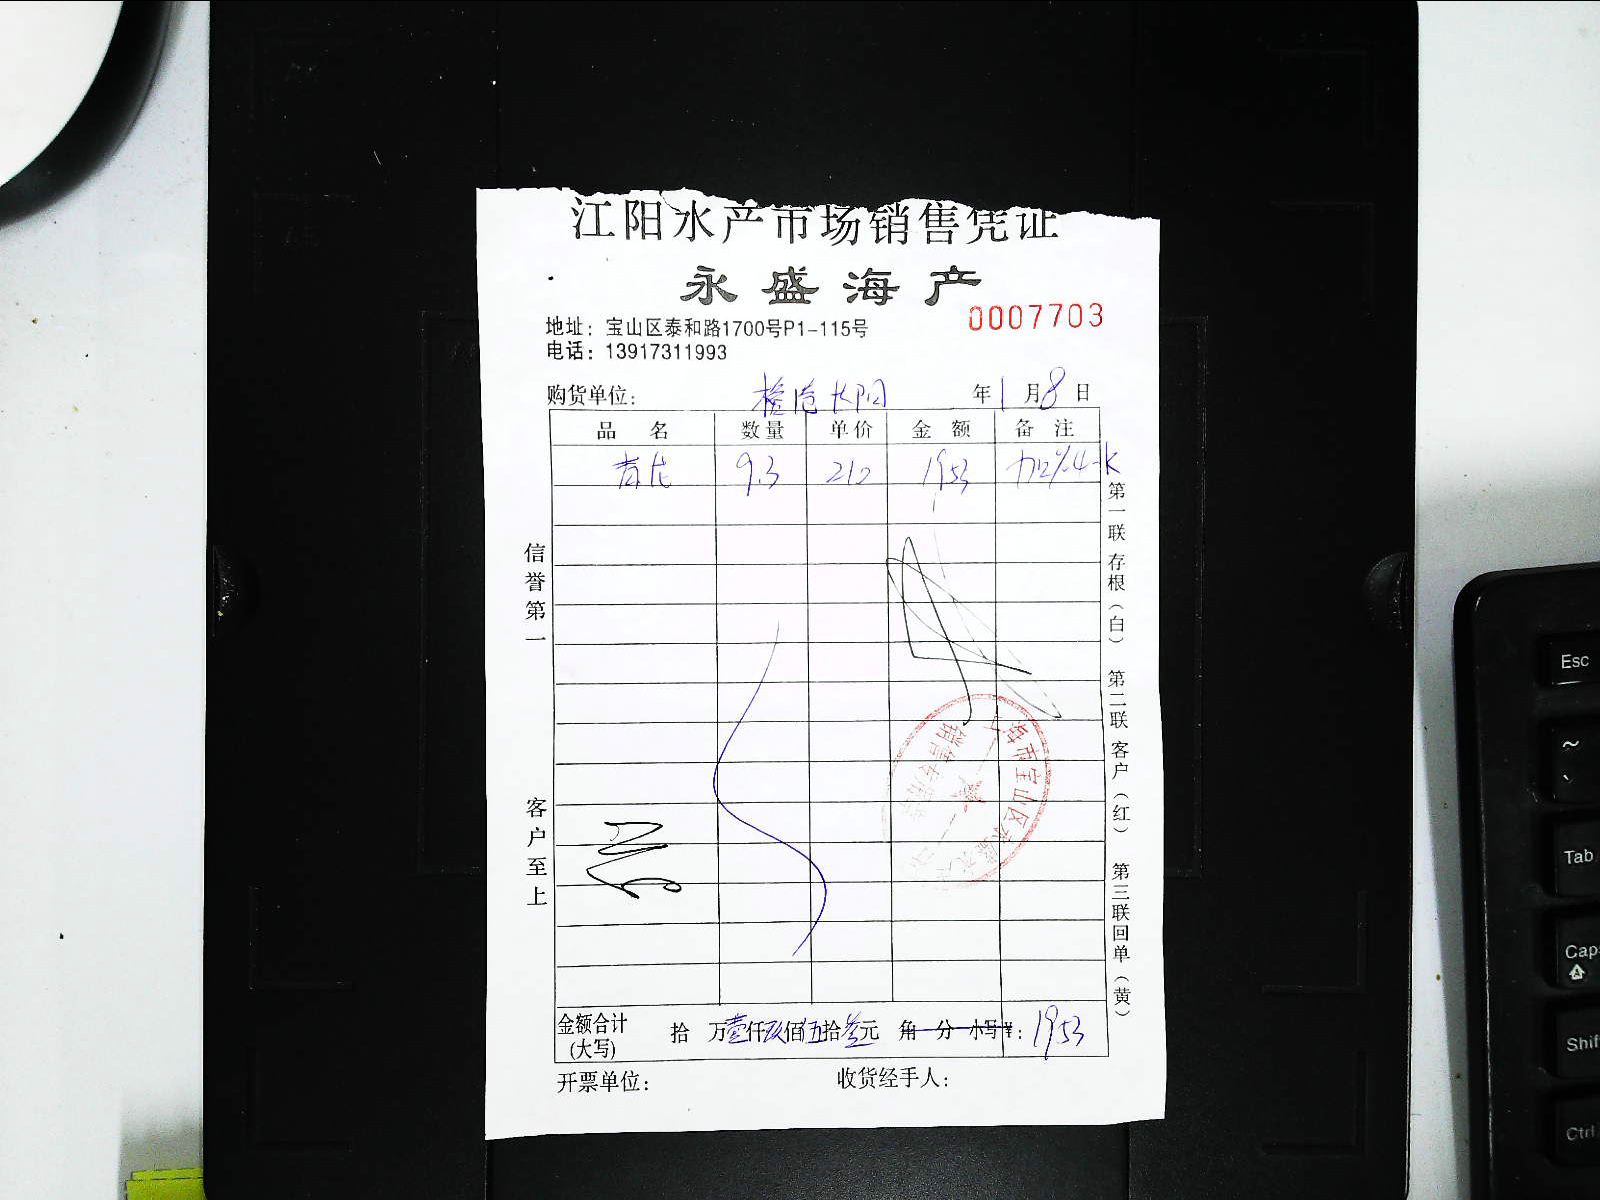 江阳水产市场销售凭证
永盛海产
0007703
地址：宝山区泰和路1700号P1-115号
电话：13917311993
购货单位： 年1月8日
品 名 数量 单价 金 额 备 注
青龙 9.3 210 1953
信誉第一
客户至上
第一联 存根（白） 第二联 客户（红） 第三联 回单（黄）
金额合计 拾 万壹仟玖佰伍拾叁元 角 分 小写¥：1953
(大写)
开票单位： 收货经手人：
销售专用章
Esc
~
Tab
Caps
Shif
Ctrl